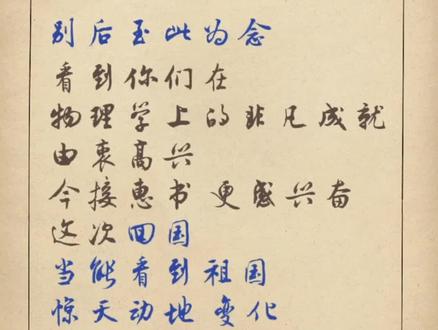 别后至此为念
看到你们在
物理学上的非凡成就
由衷高兴
今接惠书 更感兴奋
这次回国
当能看到祖国
惊天动地 变化